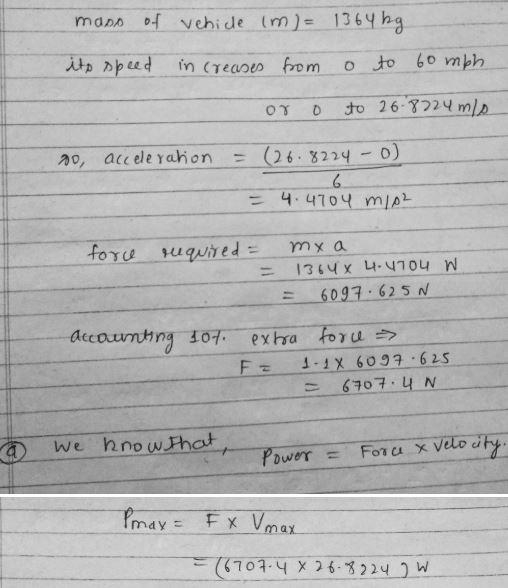 mass of vehicle (m) = 1364 kg
its speed increases from 0 to 60 mph
or 0 to 26.8224 m/s
so, acceleration = (26.8224 - 0)
6
= 4.4704 m/s2
force required = m x a
= 1364 x 4.4704 N
= 6097.625 N
accounting 10%. extra force ⇒
F = 1.1 x 6097.625
= 6707.4 N
(a) We know that, Power = Force x Velocity.
Pmax = F x Vmax
= (6707.4 x 26.8224) W